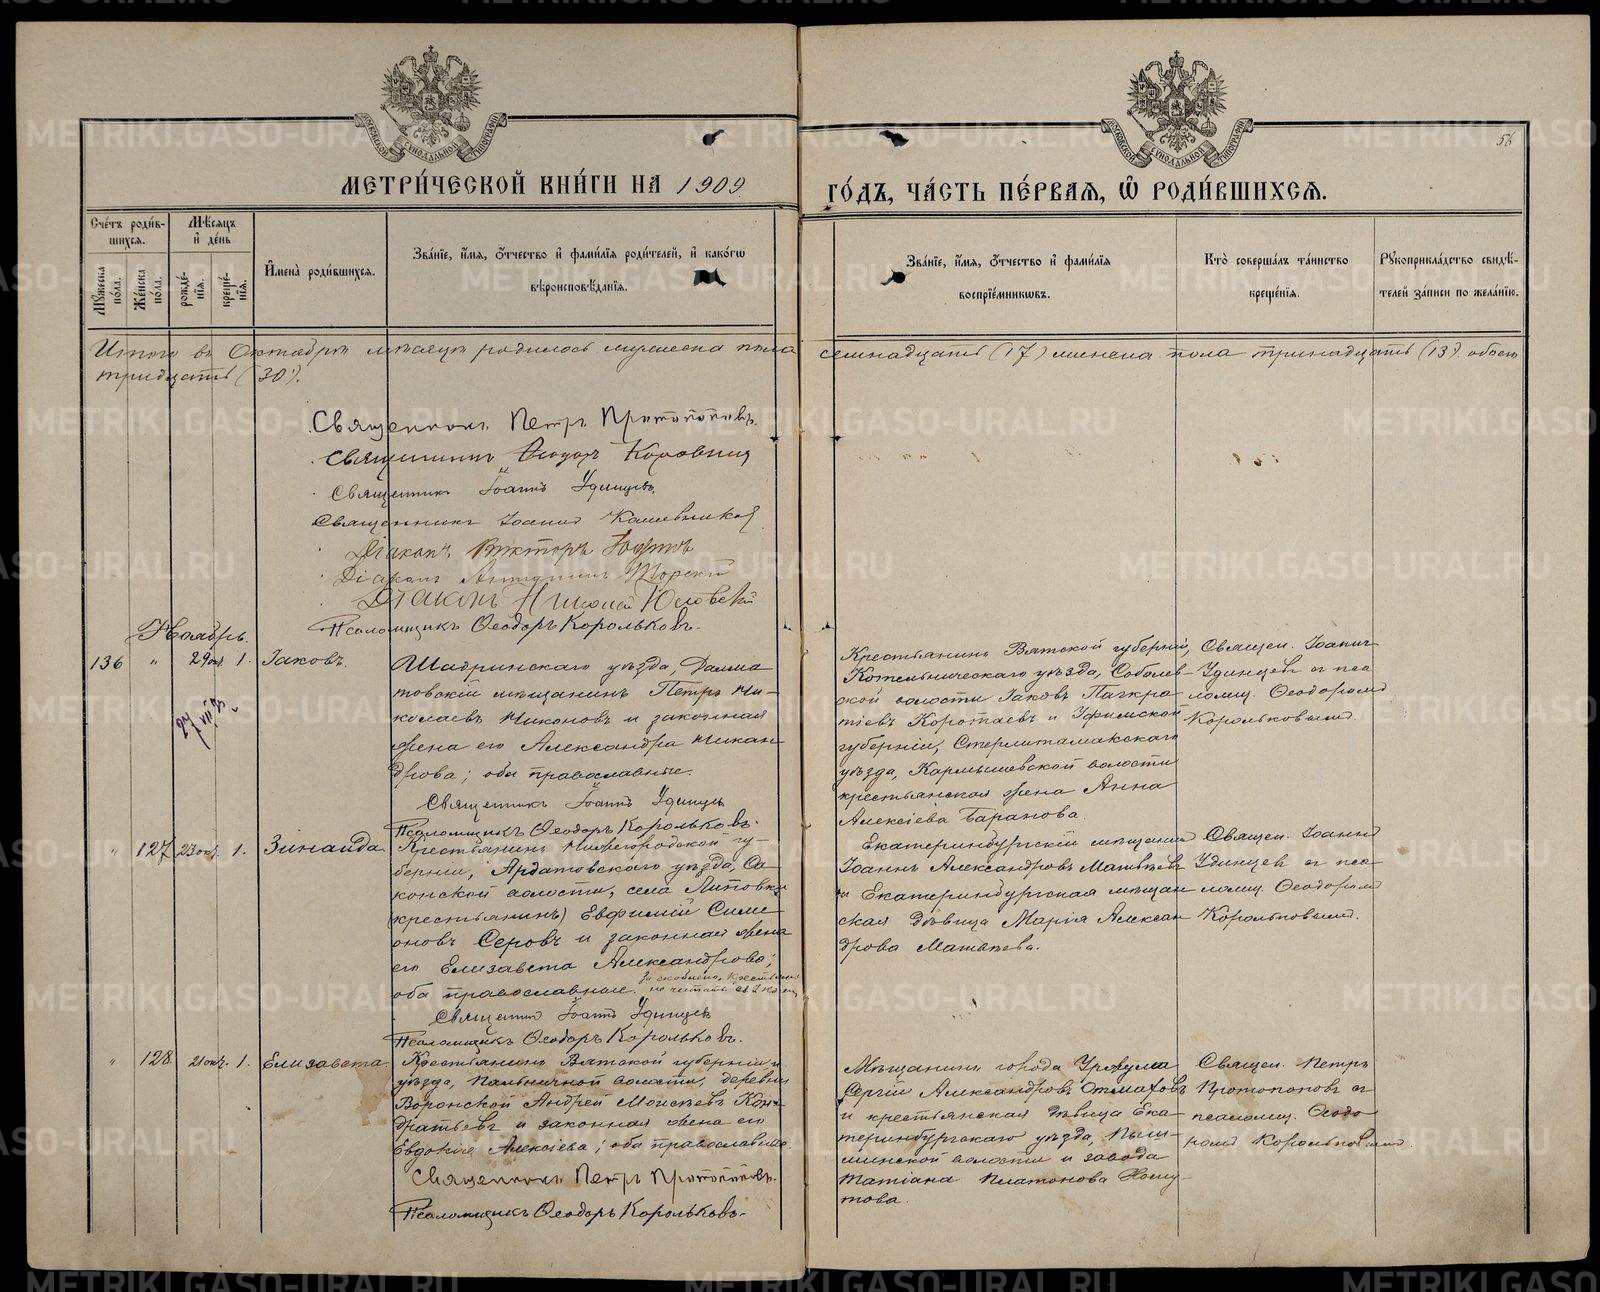 МЕТРИ́ЧЕСКОЙ КНИ́ГИ НА 1909
ГО́ДЪ, ЧА́СТЬ ПЕ́РВАЯ, Ѽ РОДИ́ВШИХСЯ.
56
МОСКОВСКОЙ СУНОДАЛЬНОЙ ТИПОГРАФІИ
МОСКОВСКОЙ СУНОДАЛЬНОЙ ТИПОГРАФІИ
Сче́тъ роди́вшихся.
Му́жеска по́ла.
Же́нска по́ла.
Мѣ́сяцъ и҆ де́нь
рожде́нїя.
креще́нїя.
И҆мена̀ роди́вшихся.
Зва́нїе, и҆́мя, ѻ҆́тчество и҆ фами́лїя роди́телей, и҆ како́гѡ
вѣроисповѣ́данїя.
Зва́нїе, и҆́мя, ѻ҆́тчество и҆ фами́лїя
воспрїе́мникѡвъ.
Кто̀ соверша́лъ та́инство
креще́нїя.
Рꙋкоприкла́дство свидѣ́телей за́писи по жела́нїю.
Итого въ Октябрѣ мѣсяцѣ родилось мужеска пола семнадцать (17) женска пола тринадцать (13) обоего
тридцать (30).
Священникъ Петръ Протопоповъ.
Священникъ Ѳеодоръ Коровинъ
Священникъ Іоаннъ Удинцевъ.
Священникъ Іоаннъ
Діаконъ Викторъ
Діаконъ
Діаконъ Николай
Псаломщикъ Ѳеодоръ Корольковъ.
Ноябрь.
136 " 29 окт. 1. Іаковъ.
27 VII
Шадринскаго уѣзда, Далма-
товскій мѣщанинъ Петръ Ни-
колаевъ Никоновъ и законная
жена его Александра Никан-
дрова; оба православные.
Священникъ Іоаннъ Удинцевъ
Псаломщикъ Ѳеодоръ Корольковъ.
Крестьянинъ Вятской губерніи,
Котельническаго уѣзда, Соболев-
ской волости Іаковъ Панкра-
тіевъ Коротаевъ и Уфимской
губерніи, Стерлитамакскаго
уѣзда, Кармышевской волости
крестьянская жена Анна
Алексіева Баранова.
Священ. Іоаннъ
Удинцевъ съ пса-
ломщ. Ѳеодоромъ
Корольковымъ.
" 127 23 окт. 1. Зинаида
Крестьянинъ Нижегородской гу-
берніи, Ардатовскаго уѣзда, Са-
конской волости, села Липовки
(крестьянинъ) Евфимій Симе-
оновъ Серовъ и законная жена
его Елизавета Александрова;
оба православные.
Священникъ Іоаннъ Удинцевъ
Псаломщикъ Ѳеодоръ Корольковъ.
Екатеринбургскій мѣщанинъ
Іоаннъ Александровъ Матвѣевъ
и Екатеринбургская мѣщан-
ская дѣвица Марія Алексан-
дрова Матвѣева.
Священ. Іоаннъ
Удинцевъ съ пса-
ломщ. Ѳеодоромъ
Корольковымъ.
" 128 21 окт. 1. Елизавета.
Крестьянинъ Вятской губерніи и
уѣзда, Пальничной волости, деревни
Воронской Андрей Моисѣевъ Кон-
дратьевъ и законная жена его
Евдокія Алексіева; оба православные.
Священникъ Петръ Протопоповъ.
Псаломщикъ Ѳеодоръ Корольковъ.
Мѣщанинъ города Уржума
Сергій Александровъ
и крестьянская дѣвица Ека-
теринбургскаго уѣзда, Пыш-
минской волости и завода
Татіана Платонова Хому-
това.
Священ. Петръ
Протопоповъ съ
псаломщ. Ѳеодо-
ромъ Корольковымъ.
METRIKI.GASO-URAL.RU